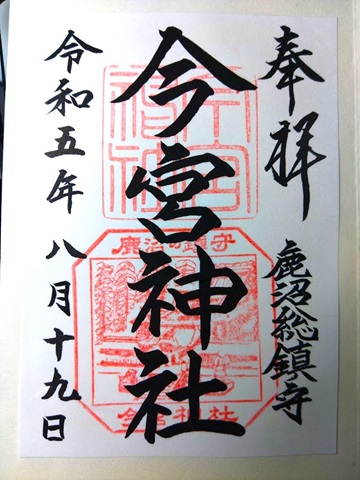 奉拝
鹿沼総鎮守
今宮神社
令和五年八月十九日
鹿沼の鎮守
今宮神社